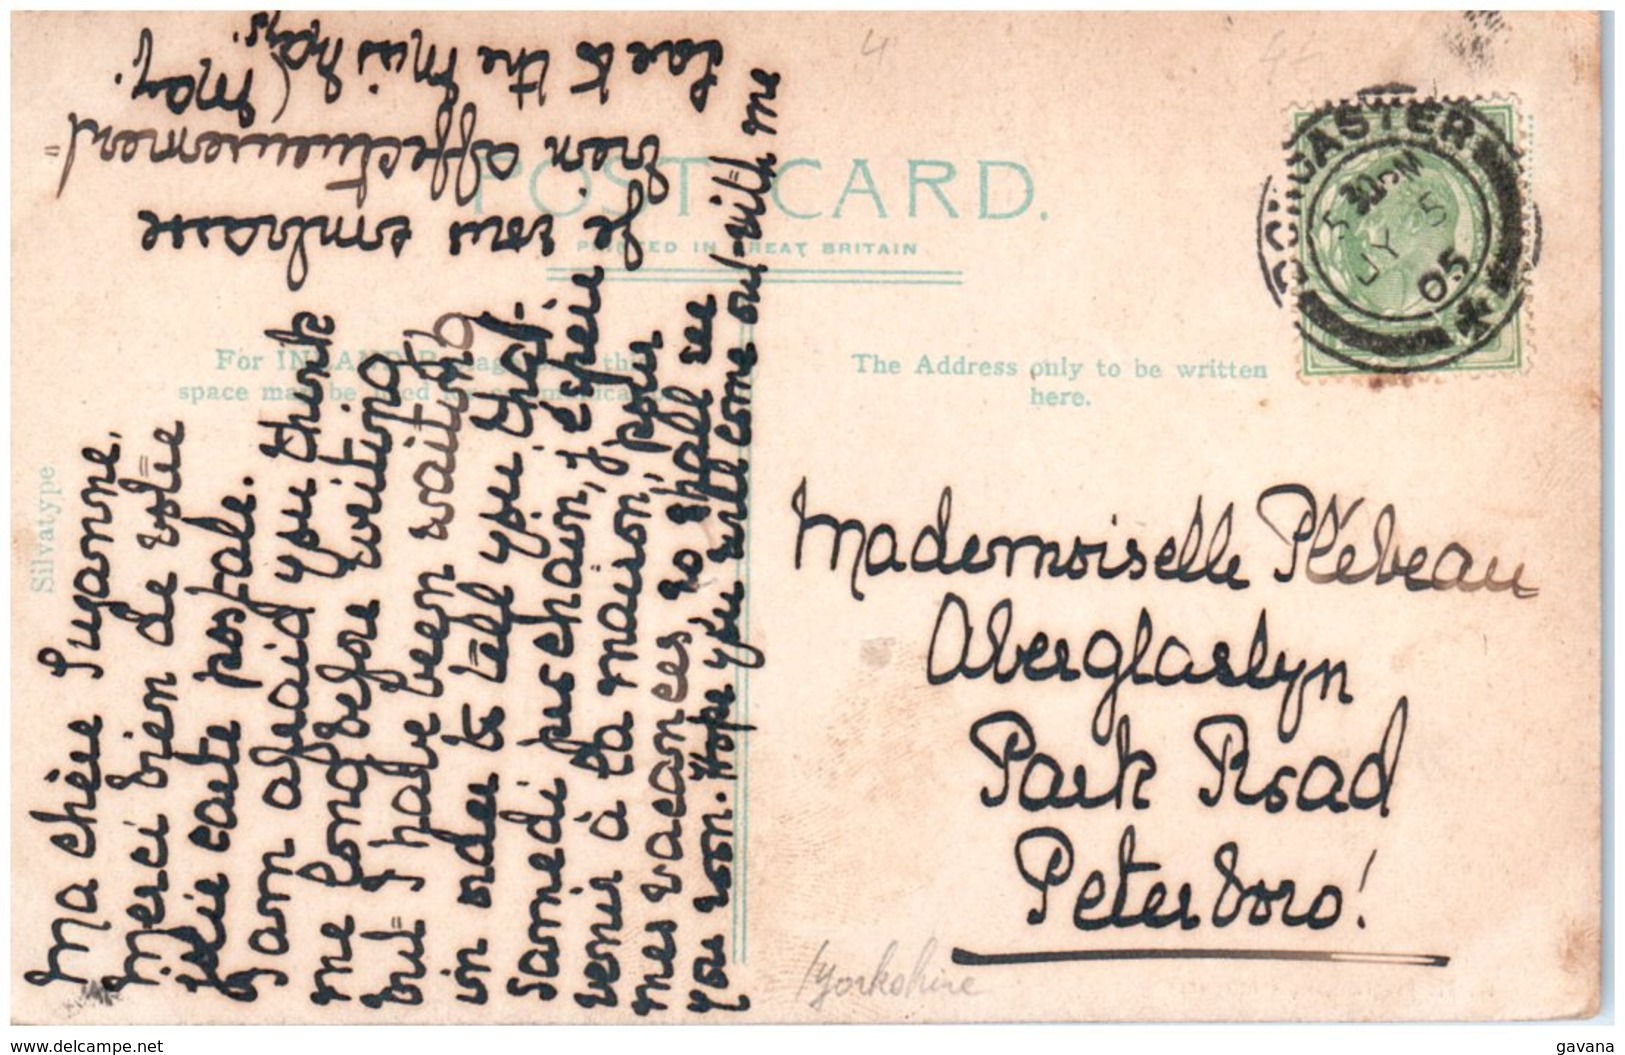 POST CARD.
PRINTED IN GREAT BRITAIN
For INLAND Postage only this
space may be used for communication
The Address only to be written
here.
Silvatype
DONCASTER
5 30 PM
JY 25
05
Ma chère Suzanne,
Merci bien de votre
jolie carte postale.
I am afraid you think
me long before writing
but I have been waiting
in order to tell you that
Samedi prochain, j'espère
venir à la maison, pour
mes vacances, so shall see
you soon. Hope you will come out with me
Je vous embrasse
bien affectueusement
May.
Love to the Miss
Mademoiselle Plébeau
Aberglaslyn
Park Road
Peterboro'.
Yorkshire
4
delcampe.net
gavana